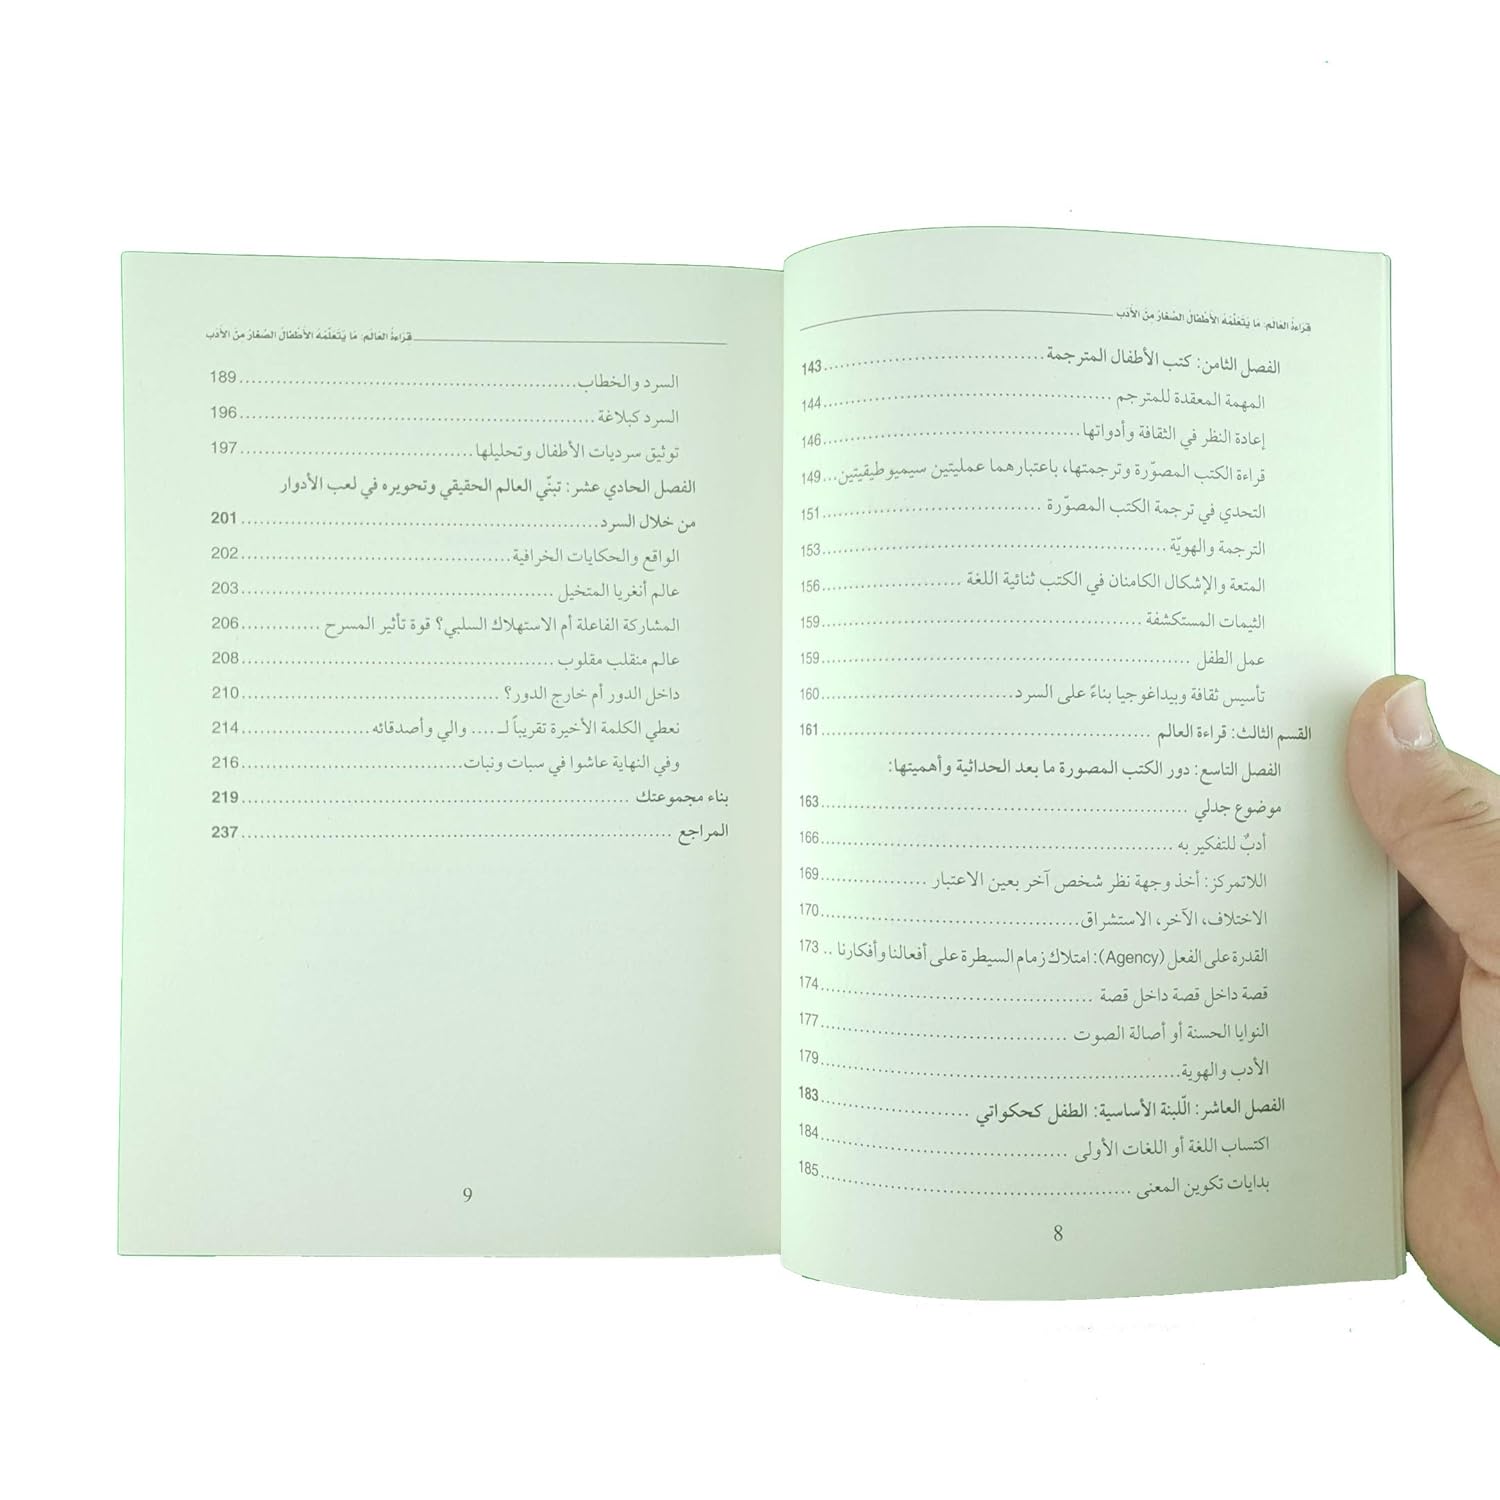 قراءة العالم: ما يتعلمه الأطفال الصغار من الأدب
الفصل الثامن: كتب الأطفال المترجمة............143
المهمة المعقدة للمترجم............144
إعادة النظر في الثقافة وأدواتها............146
قراءة الكتب المصوّرة وترجمتها، باعتبارهما عمليتين سيميوطيقيتين...149
التحدي في ترجمة الكتب المصوّرة............151
الترجمة والهويّة............153
المتعة والإشكال الكامنان في الكتب ثنائية اللغة............156
الثيمات المستكشفة............159
عمل الطفل............159
تأسيس ثقافة وبيداغوجيا بناءً على السرد............160
القسم الثالث: قراءة العالم............161
الفصل التاسع: دور الكتب المصورة ما بعد الحداثية وأهميتها:
موضوع جدلي............163
أدبٌ للتفكير به............166
اللاتمركز: أخذ وجهة نظر شخص آخر بعين الاعتبار............169
الاختلاف، الآخر، الاستشراق............170
القدرة على الفعل (Agency): امتلاك زمام السيطرة على أفعالنا وأفكارنا..173
قصة داخل قصة داخل قصة............174
النوايا الحسنة أو أصالة الصوت............177
الأدب والهوية............179
الفصل العاشر: اللّبنة الأساسية: الطفل كحكواتي............183
اكتساب اللغة أو اللغات الأولى............184
بدايات تكوين المعنى............185
8
قراءة العالم: ما يتعلمه الأطفال الصغار من الأدب
السرد والخطاب............189
السرد كبلاغة............196
توثيق سرديات الأطفال وتحليلها............197
الفصل الحادي عشر: تبنّي العالم الحقيقي وتحويره في لعب الأدوار
من خلال السرد............201
الواقع والحكايات الخرافية............202
عالم أنغريا المتخيل............203
المشاركة الفاعلة أم الاستهلاك السلبي؟ قوة تأثير المسرح............206
عالم منقلب مقلوب............208
داخل الدور أم خارج الدور؟............210
نعطي الكلمة الأخيرة تقريباً لـ .... والي وأصدقائه............214
وفي النهاية عاشوا في سبات ونبات............216
بناء مجموعتك............219
المراجع............237
9